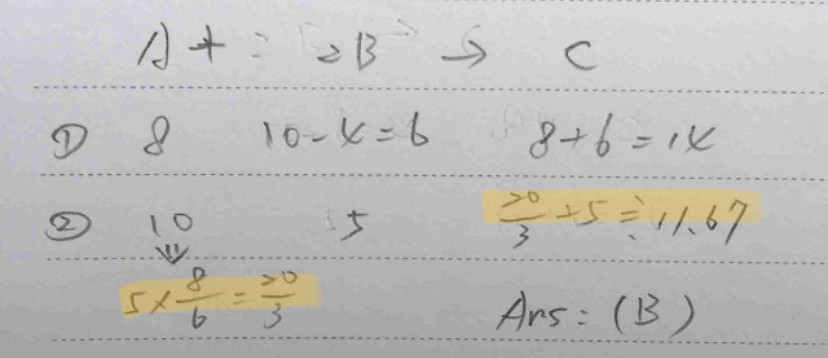 A + 2B → C
① 8 10-4=6 8+6=14
② 10 5 20/3+5≒11.67
⇓
5×8/6=20/3 Ans:(B)